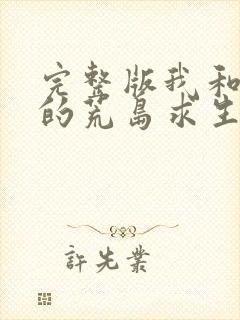 完整版我和
的荒岛求生
許先業